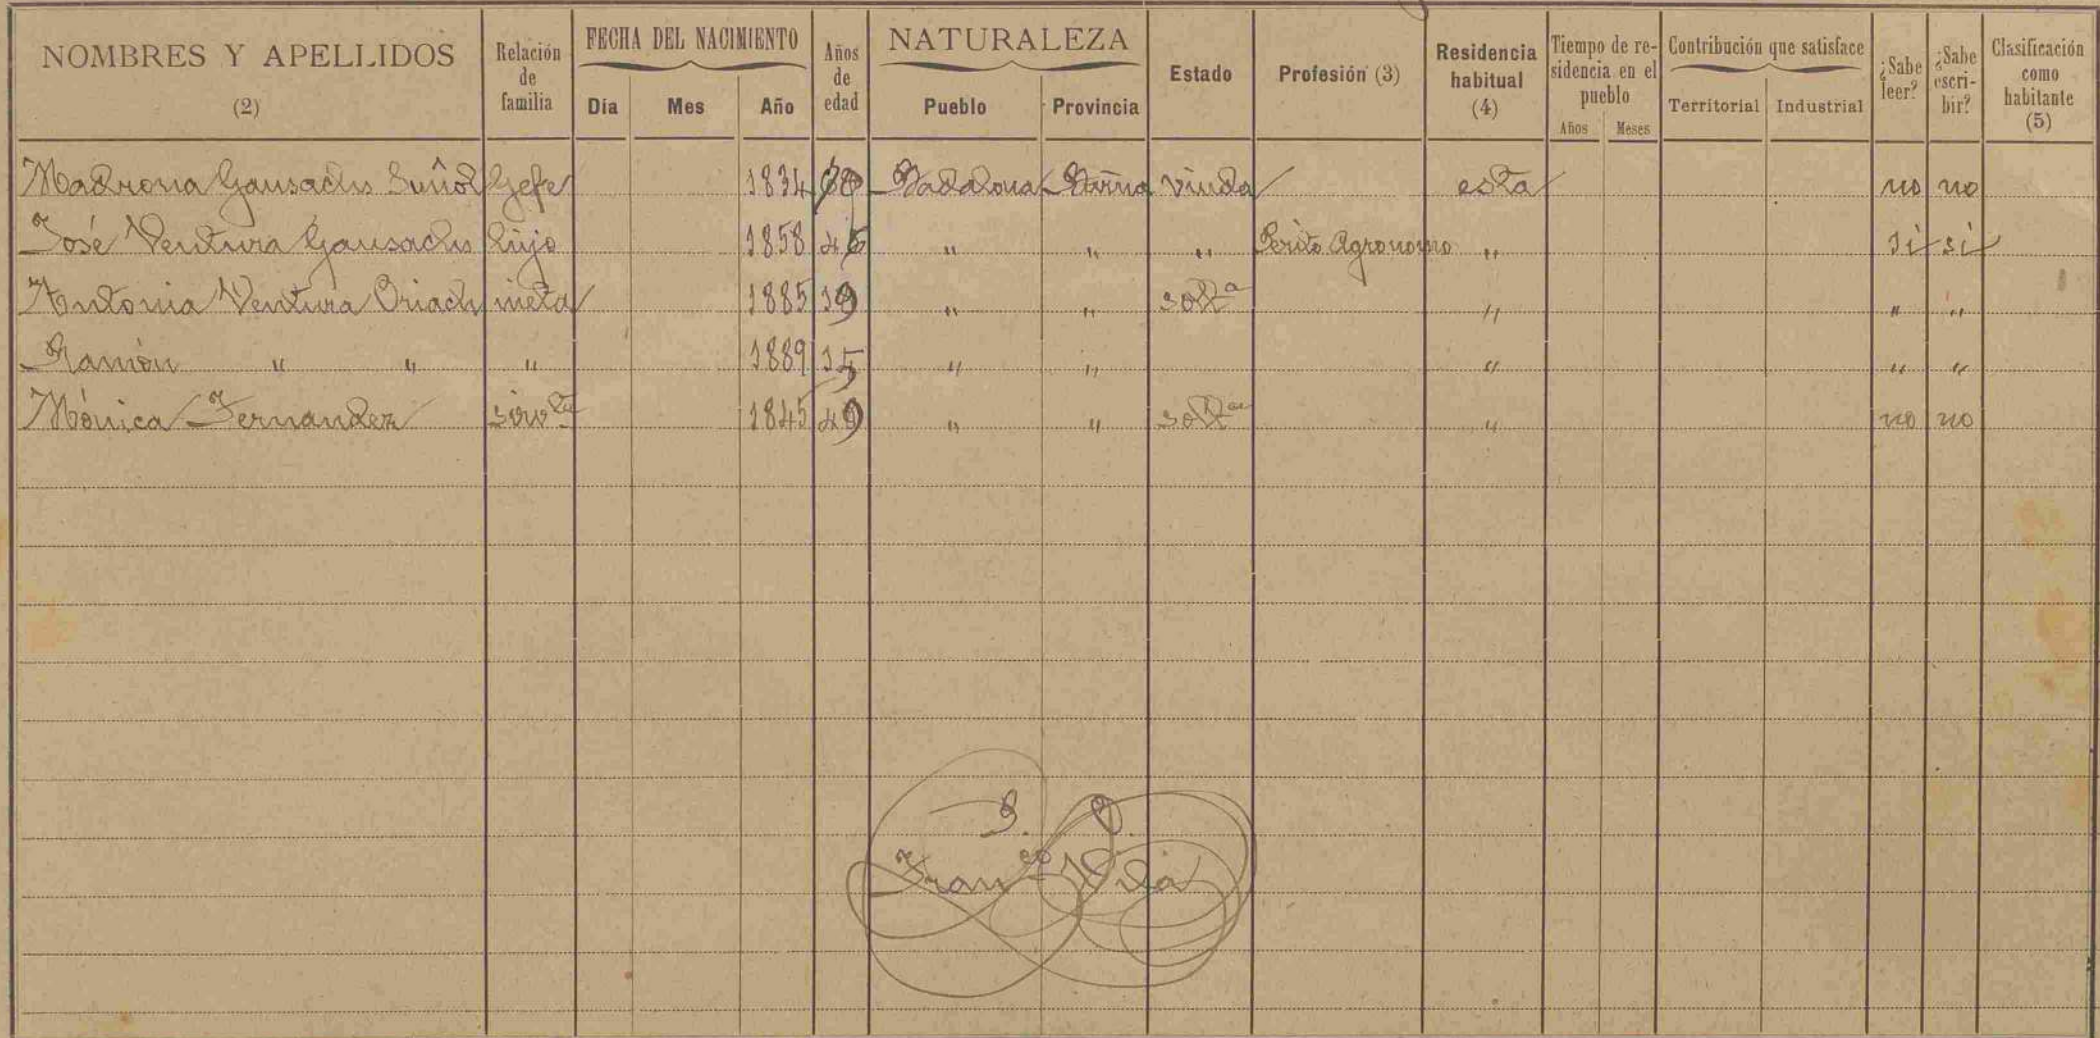 NOMBRES Y APELLIDOS (2) Relación de familia FECHA DEL NACIMIENTO Día Mes Año Años de edad NATURALEZA Pueblo Provincia Estado Profesión (3) Residencia habitual (4) Tiempo de residencia en el pueblo Años Meses Contribución que satisface Territorial Industrial ¿Sabe leer? ¿Sabe escribir? Clasificación como habitante (5)
Madrona Gausachs Suñol Gefe 1834 Badalona Barna viuda esta no no
José Ventura Gausachs hijo 1858 46 " " " Perito Agronomo " si si
Antonia Ventura Oriach nieta 1885 19 " " soltª " " "
Ramón " " " 1889 15 " " " " "
Mónica Fernandez sirvte 1845 49 " " soltª " no no
P. O.
Franco Vila